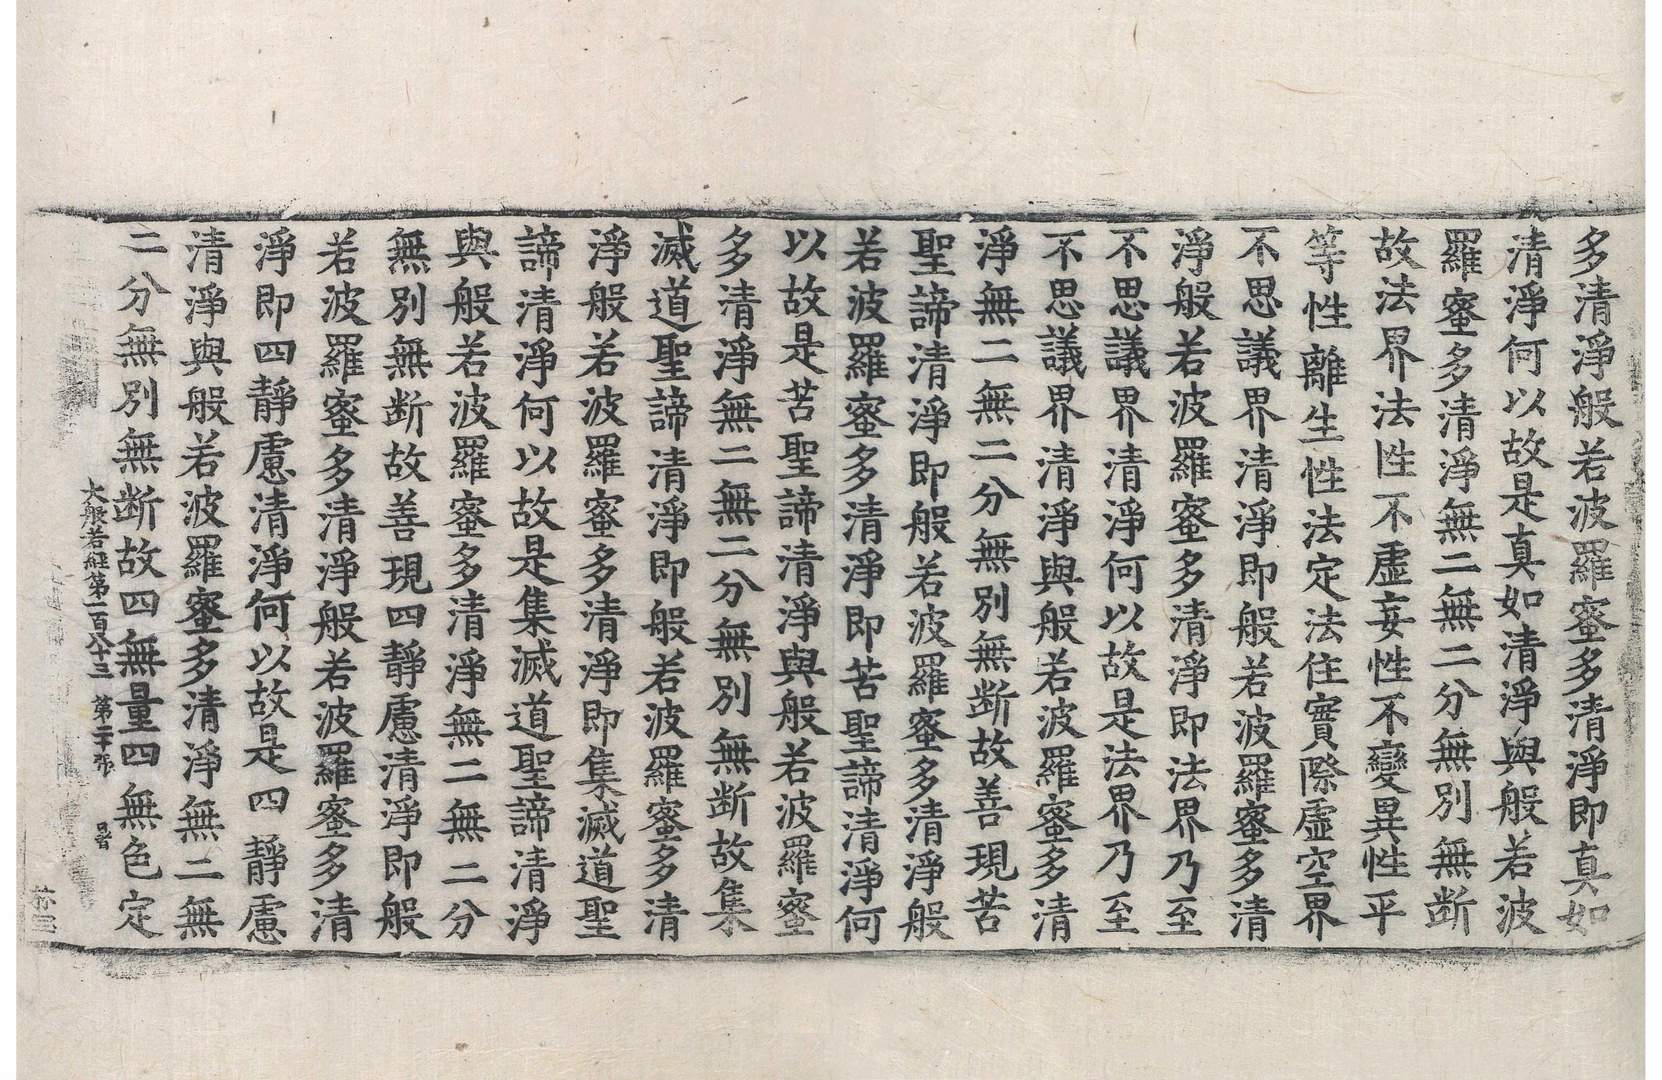 多清淨般若波羅蜜多清淨即真如
清淨何以故是真如清淨與般若波
羅蜜多清淨無二無二分無別無断
故法界法性不虛妄性不變異性平
等性離生性法定法住實際虛空界
不思議界清淨即般若波羅蜜多清
淨般若波羅蜜多清淨即法界乃至
不思議界清淨何以故是法界乃至
不思議界清淨與般若波羅蜜多清
淨無二無二分無別無断故善現苦
聖諦清淨即般若波羅蜜多清淨般
若波羅蜜多清淨即苦聖諦清淨何
以故是苦聖諦清淨與般若波羅蜜
多清淨無二無二分無別無断故集
滅道聖諦清淨即般若波羅蜜多清
淨般若波羅蜜多清淨即集滅道聖
諦清淨何以故是集滅道聖諦清淨
與般若波羅蜜多清淨無二無二分
無別無断故善現四靜慮清淨即般
若波羅蜜多清淨般若波羅蜜多清
淨即四靜慮清淨何以故是四靜慮
清淨與般若波羅蜜多清淨無二無
二分無別無断故四無量四無色定
大般若経第一百八十三 第二十張